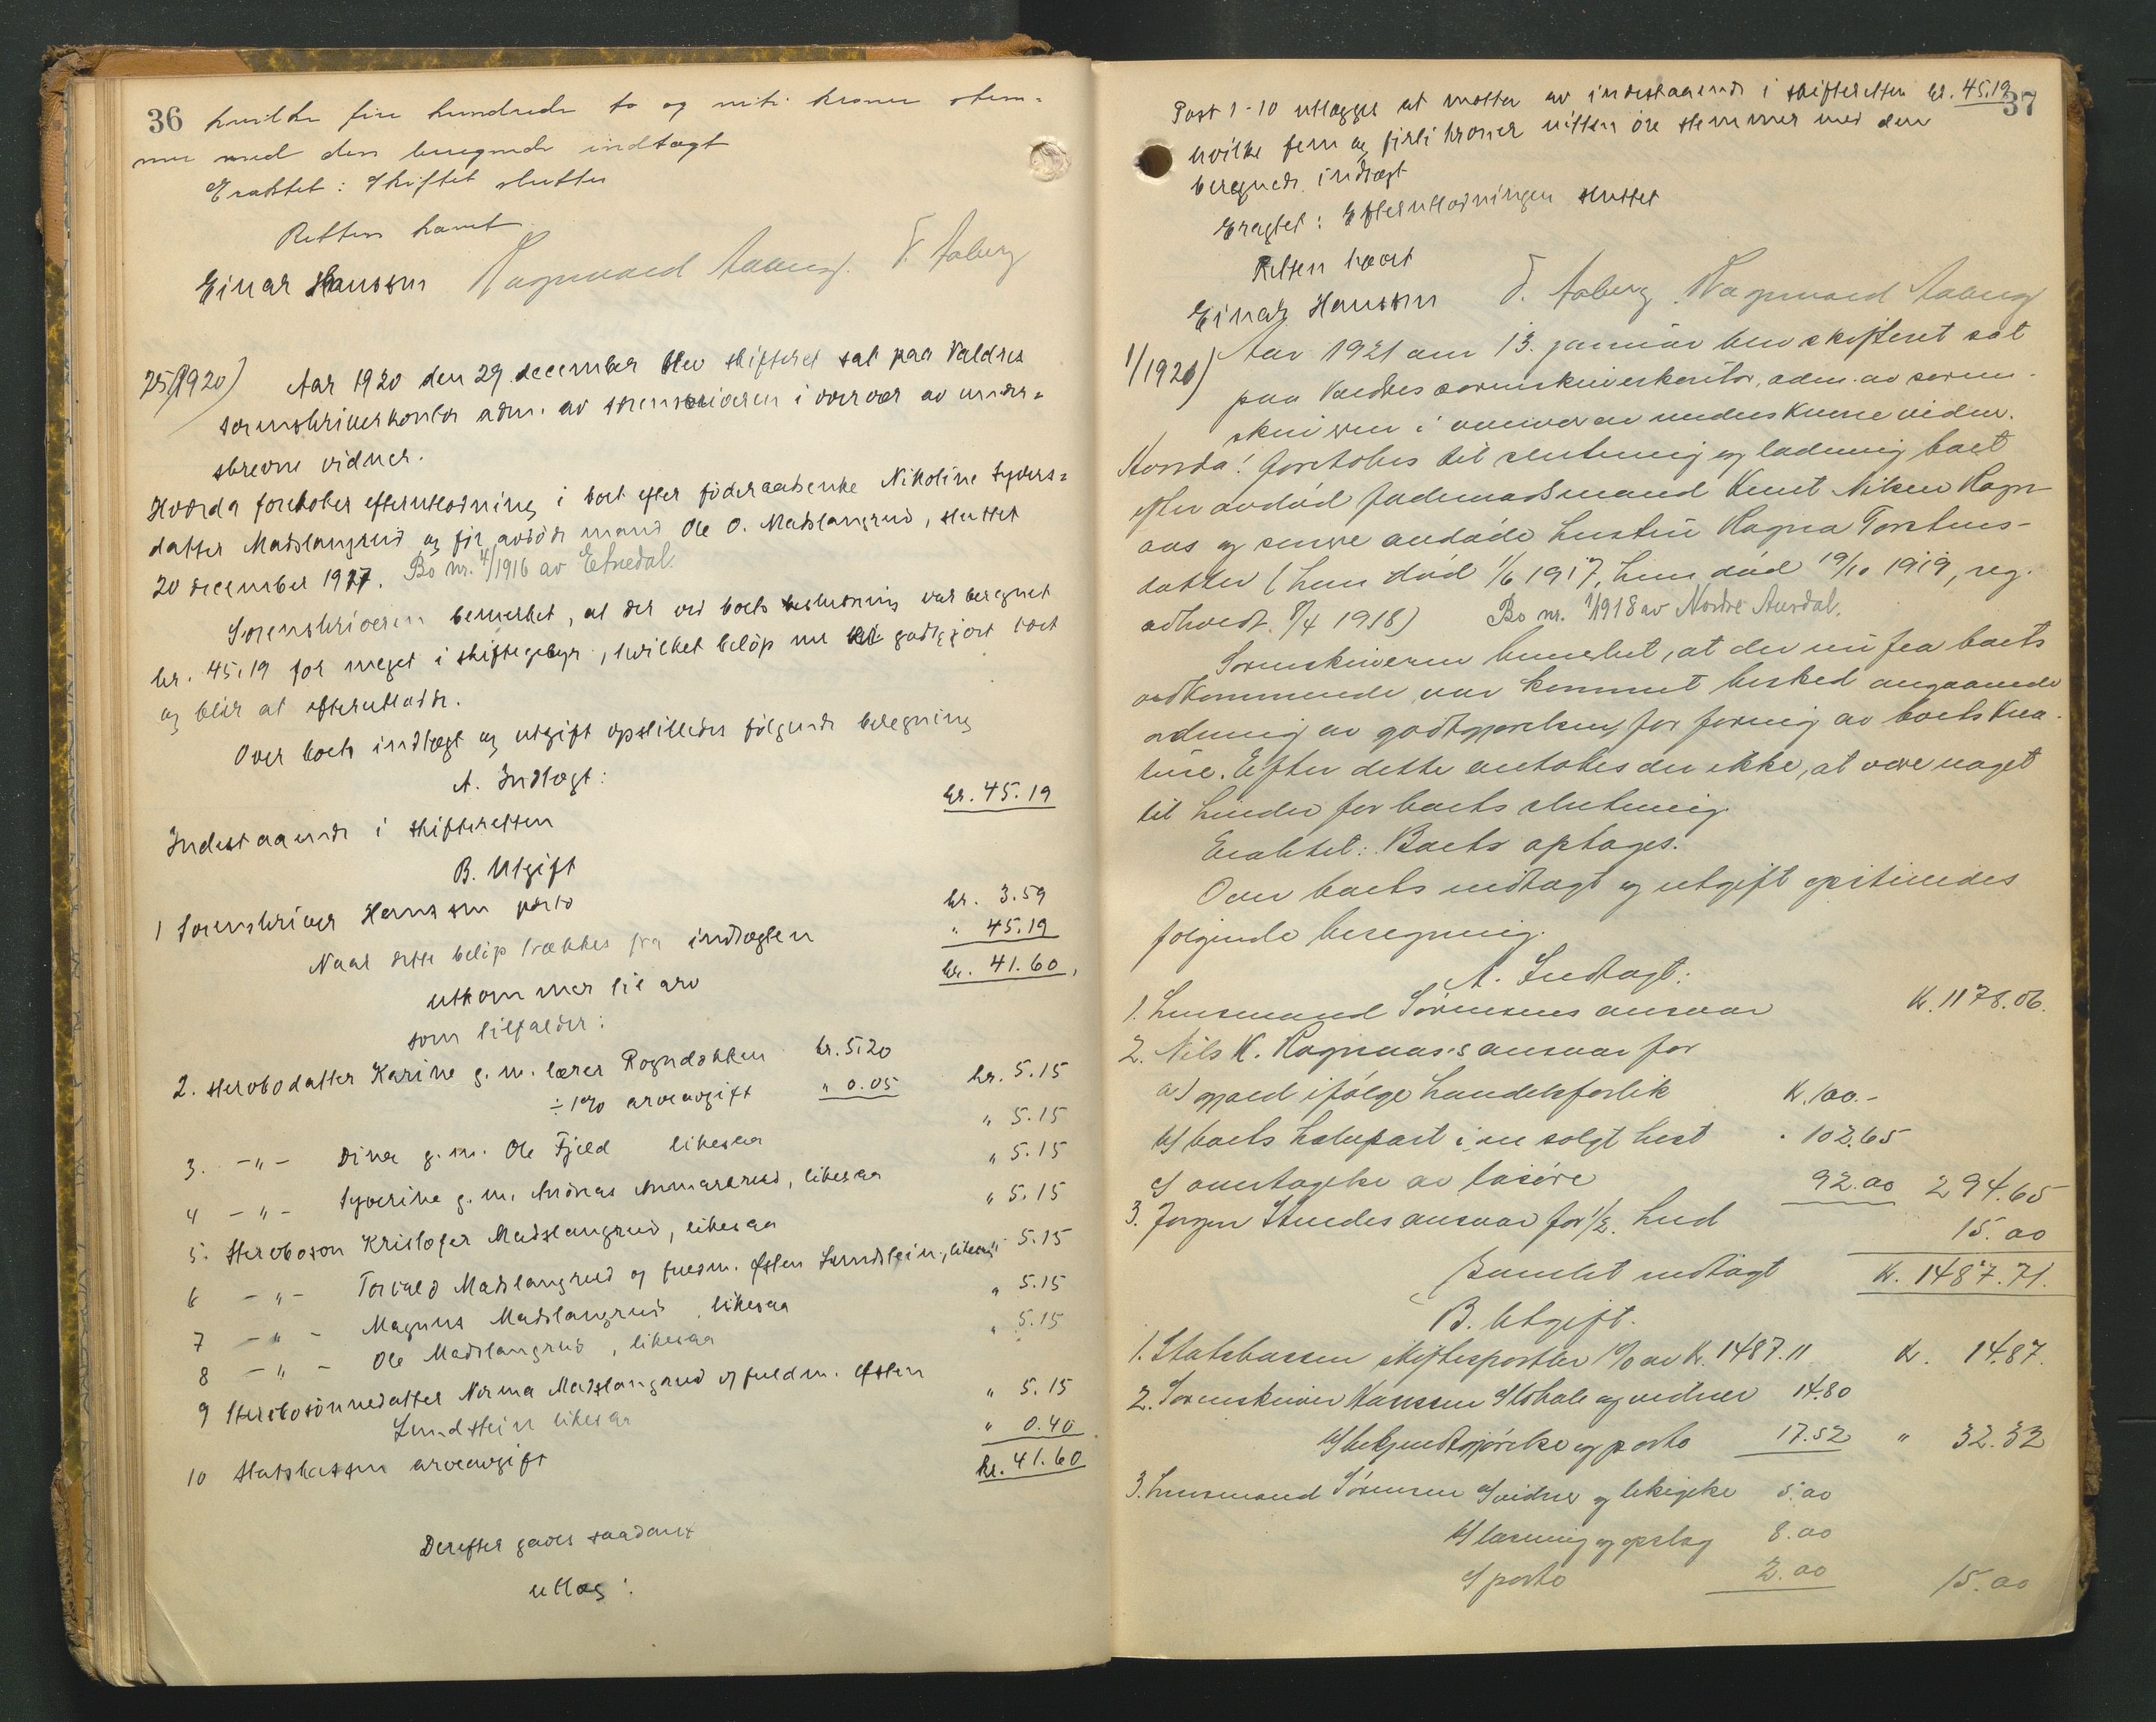 36
hvilke fire hundrede to og niti kroner stem-
mer med den beregnede indtægt
Eraktet: Skiftet sluttes
Retten hævet
Einar Hanssen Ragnvald Aaberg. T. Aaberg
25/1920) Aar 1920 den 29 december blev skifteret sat paa Valdres
sorenskriverkontor adm. av sorenskriveren i overvær av under-
skrevne vidner.
Hvorda foretokes efterutlodning i boet efter føderaadsenke Nikoline Syvers-
datter Madslangrud og før avdøde mand Ole O. Madslangrud, sluttet
20 december 1917. Bo nr. 4/1916 av Etnedal.
Sorenskriveren bemerket, at der ved boets beslutning var beregnet
kr. 45,19 for meget i skiftegebyr, hvilket beløp nu er godtgjort boet
og blir at efterutlodde.
Over boets indtægt og utgift opstilledes følgende beregning
A. Indtægt:
Indestaaende i skifteretten kr. 45.19
B. Utgift
1 Sorenskriver Hanssen porto kr. 3.59
Naar dette beløp trækkes fra indtægten " 45.19
utkommer til arv kr. 41.60,
som tilfalder:
2. Sterbodatter Karine g. m. lærer Rogndokken kr. 5.20
÷ 1% arveavgift " 0.05 kr. 5.15
3. -"- Dina g. m. Ole Fjeld likesaa " 5.15
4 -"- Syverine g. m. Andreas Ammarerud, likesaa " 5.15
5. Sterboson Kristofer Madslangrud, likesaa " 5.15
6 -"- Torvald Madslangrud og fuldm. Østen Lundstein, likesaa " 5.15
7 -"- Magnus Madslangrud, likesaa " 5.15
8 -"- Ole Madslangrud, likesaa " 5.15
9 Sterbosønnedatter Norma Madslangrud og fuldm. Østen
Lundstein likesaa " 5.15
10 Statskassen arveavgift " 0.40
kr. 41.60
Derefter gaves saadant
utlæg:
37
Post 1-10 utlægges at motta av indestaaende i skifteretten kr. 45.19
hvilke fem og firti kroner nitten øre stemmer med den
beregnede indtægt
Eragtet: Efterutlodningen sluttet
Retten hævet
Einar Hanssen T. Aaberg Ragnvald Aaberg
1/1920) Aar 1921 den 13. januar blev skifteret sat
paa Valdres sorenskriverkontor, adm. av soren-
skriveren i overvær av underskrevne vidner.
Hvorda: Foretokes til slutning og lodning boet
efter avdød fademadsmand Knut Nilsen Ragn-
aas og senere avdøde hustru Ragna Torstens-
datter (han død 1/6 1917, hun død 19/10 1919, reg.
adkvedt. 8/4 1918) Bo nr. 1/1918 av Nordre Aurdal.
Sorenskriveren bemerket, at der nu fra boets
vedkommende var kommet besked angaaende
ordning av godtgjørelsen for foring av boets krea-
turer. Efter dette antokes der ikke, at være noget
til hinder for boets slutning.
Eraktet: Boets optages.
Over boets indtægt og utgift opstilledes
følgende beregning.
A. Indtægt:
1. Lensmand Sørensens ansvar kr. 1178.06.
2. Nils K. Ragnaas's ansvar for
a) gjæld ifølge handelsforlik kr. 100.-
b) boets halvpart i en solgt hest " 102.65
c) overtagelse av løsøre 92.00 294.65
3. Jørgen Stuedes ansvar for 1/2 hud 15.00
Samlet indtægt kr. 1487.71.
B. Utgift.
1. Statskassen skiftesportler 1% av kr. 1487.11 kr. 14.87.
2. Sorenskriver Hanssen a) lokale og vidner 14.80
b) bekjendtgjørelse og porto 17.52 " 32.32
3. Lensmand Sørensen a) vidner og likegeke 5.00
b) læsning og opslag 8.00
c) porto 2.00 15.00